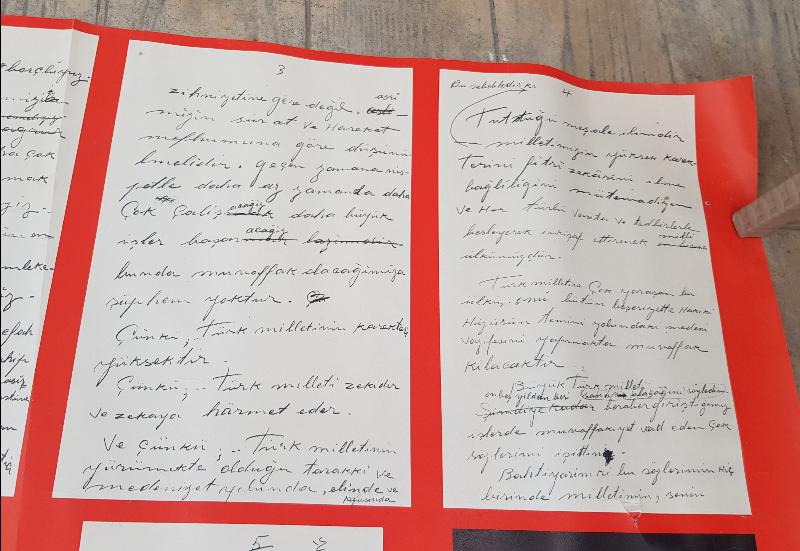 borçluyuz.
çok
3
zihniyetine göre değil, asri
mızın surat ve Hareket
mefhumuna göre düşünü
lmelidir. geçen zamana nis
petle daha az zamanda daha
Çok Çalışacağız daha büyük
işler başaracağız
bunda muvaffak olacağımıza
şüphem yoktur.
Çünkü, Türk milletinin karakteri
yüksektir.
Çünkü,.. Türk milleti zekidir
ve zekaya hürmet eder.
Ve Çünkü,.. Türk milletinin
yürümekte olduğu terakki ve
medeniyet yolunda, elinde ve
kafasında
Bu sebebledirki 4
Tuttuğu meşale ilimdir
milletimizin yüksek karak
terini fitri zekâsini ilme
bağliliğini mütemadiyen
ve Her türlü vasıta ve tedbirlerle
besleyerek inkişaf ettirerek milli
ülkümüzdür.
Türk milletine Çok yaraşan bu
ülkü, onu bütün beşeriyette Hakiki
Huzurun temini yolundaki medeni
vazifesini yapmakta muvaffak
kılacaktır
Büyük Türk millet
onbeş yıldan beri söyledim
beraber giriştiğimiz
işlerde muvaffakiyet vad eden Çok
sözlerimi işittin.
Bahtiyarimki bu sözlerimin Hiç
birinde milletimin, senin
5